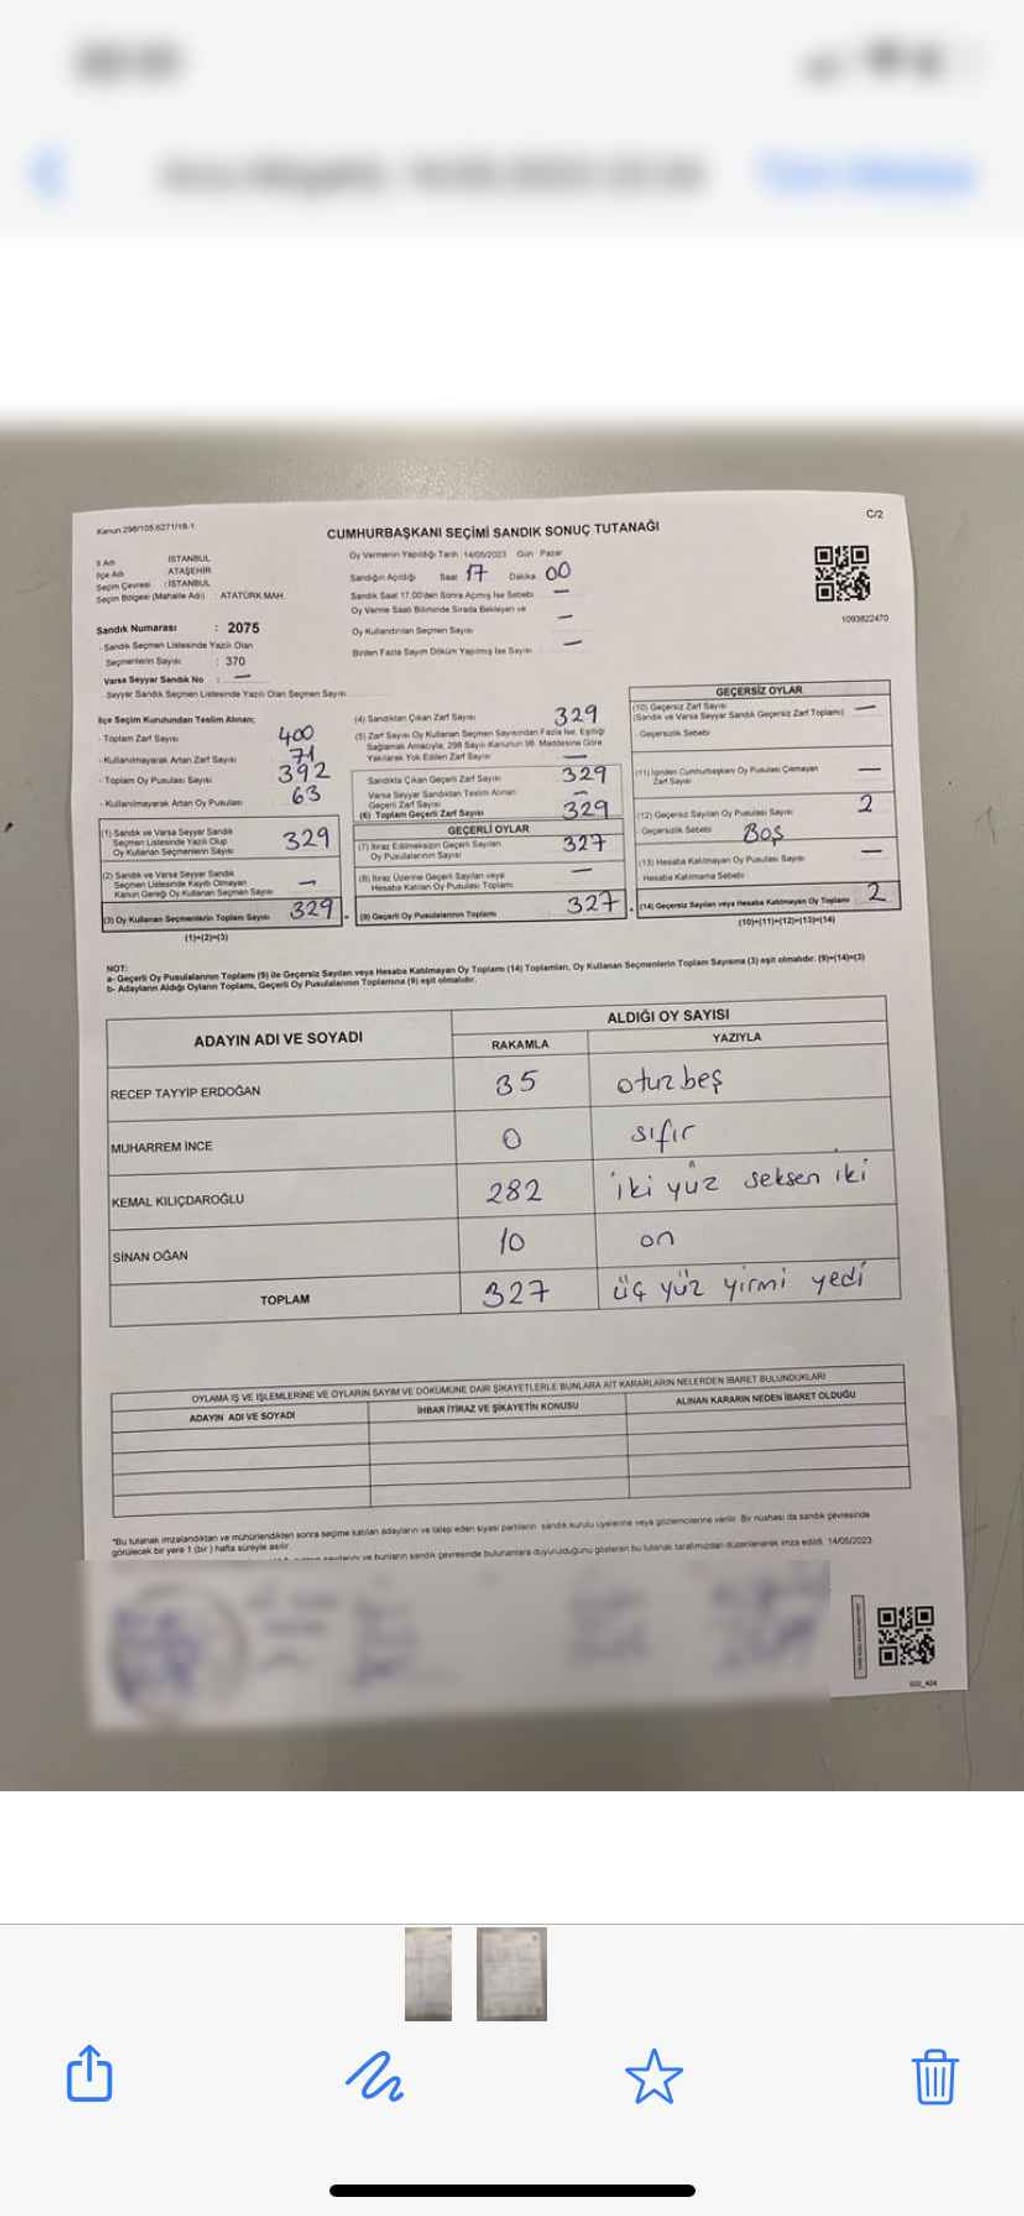 Kanun 298/105,6271/18-1
C/2
CUMHURBAŞKANI SEÇİMİ SANDIK SONUÇ TUTANAĞI
İl Adı İSTANBUL
İlçe Adı ATAŞEHİR
Seçim Çevresi : İSTANBUL
Seçim Bölgesi (Mahalle Adı) ATATÜRK MAH.
Sandık Numarası : 2075
- Sandık Seçmen Listesinde Yazılı Olan
Seçmenlerin Sayısı : 370
Varsa Seyyar Sandık No : —
- Seyyar Sandık Seçmen Listesinde Yazılı Olan Seçmen Sayısı
Oy Vermenin Yapıldığı Tarih 14/05/2023 Gün Pazar
Sandığın Açıldığı Saat 17 Dakika 00
Sandık Saat 17.00'den Sonra Açılmış İse Sebebi —
Oy Verme Saati Bitiminde Sırada Bekleyen ve
Oy Kullandırılan Seçmen Sayısı —
Birden Fazla Sayım Döküm Yapılmış İse Sayısı —
1093822470
İlçe Seçim Kurulundan Teslim Alınan;
- Toplam Zarf Sayısı 400
- Kullanılmayarak Artan Zarf Sayısı 71
- Toplam Oy Pusulası Sayısı 392
- Kullanılmayarak Artan Oy Pusulası 63
(1) Sandık ve Varsa Seyyar Sandık
Seçmen Listesinde Yazılı Olup
Oy Kullanan Seçmenlerin Sayısı 329
(2) Sandık ve Varsa Seyyar Sandık
Seçmen Listesinde Kayıtlı Olmayan
Kanun Gereği Oy Kullanan Seçmen Sayısı —
(3) Oy Kullanan Seçmenlerin Toplam Sayısı 329
(1)+(2)=(3)
(4) Sandıktan Çıkan Zarf Sayısı 329
(5) Zarf Sayısı Oy Kullanan Seçmen Sayısından Fazla İse, Eşitliği
Sağlamak Amacıyla, 298 Sayılı Kanunun 98. Maddesine Göre
Yakılarak Yok Edilen Zarf Sayısı —
Sandıkta Çıkan Geçerli Zarf Sayısı 329
Varsa Seyyar Sandıktan Teslim Alınan
Geçerli Zarf Sayısı —
(6) Toplam Geçerli Zarf Sayısı 329
GEÇERLİ OYLAR
(7) İtiraz Edilmeksizin Geçerli Sayılan
Oy Pusulalarının Sayısı 327
(8) İtiraz Üzerine Geçerli Sayılan veya
Hesaba Katılan Oy Pusulası Toplamı —
(9) Geçerli Oy Pusulalarının Toplamı 327
GEÇERSİZ OYLAR
(10) Geçersiz Zarf Sayısı
(Sandık ve Varsa Seyyar Sandık Geçersiz Zarf Toplamı) —
Geçersizlik Sebebi
(11) İçinden Cumhurbaşkanı Oy Pusulası Çıkmayan
Zarf Sayısı —
(12) Geçersiz Sayılan Oy Pusulası Sayısı 2
Geçersizlik Sebebi Boş
(13) Hesaba Katılmayan Oy Pusulası Sayısı —
Hesaba Katılmama Sebebi
(14) Geçersiz Sayılan veya Hesaba Katılmayan Oy Toplamı 2
(10)+(11)+(12)+(13)=(14)
NOT:
a- Geçerli Oy Pusulalarının Toplamı (9) ile Geçersiz Sayılan veya Hesaba Katılmayan Oy Toplamı (14) Toplamları, Oy Kullanan Seçmenlerin Toplam Sayısına (3) eşit olmalıdır. (9)+(14)=(3)
b- Adayların Aldığı Oyların Toplamı, Geçerli Oy Pusulalarının Toplamına (9) eşit olmalıdır.
ADAYIN ADI VE SOYADI
ALDIĞI OY SAYISI
RAKAMLA YAZIYLA
RECEP TAYYİP ERDOĞAN 35 otuz beş
MUHARREM İNCE 0 sıfır
KEMAL KILIÇDAROĞLU 282 iki yüz seksen iki
SİNAN OĞAN 10 on
TOPLAM 327 üç yüz yirmi yedi
OYLAMA İŞ VE İŞLEMLERİNE VE OYLARIN SAYIM VE DÖKÜMÜNE DAİR ŞİKAYETLERLE BUNLARA AİT KARARLARIN NELERDEN İBARET BULUNDUKLARI
ADAYIN ADI VE SOYADI İHBAR İTİRAZ VE ŞİKAYETİN KONUSU ALINAN KARARIN NEDEN İBARET OLDUĞU
*Bu tutanak imzalandıktan ve mühürlendikten sonra seçime katılan adayların ve talep eden siyasi partilerin sandık kurulu üyelerine veya gözlemcilerine verilir. Bir nüshası da sandık çevresinde
görülecek bir yere 1 (bir) hafta süreyle asılır.
ve bunların sandık çevresinde bulunanlara duyurulduğunu gösteren bu tutanak tarafımızdan düzenlenerek imza edildi. 14/05/2023